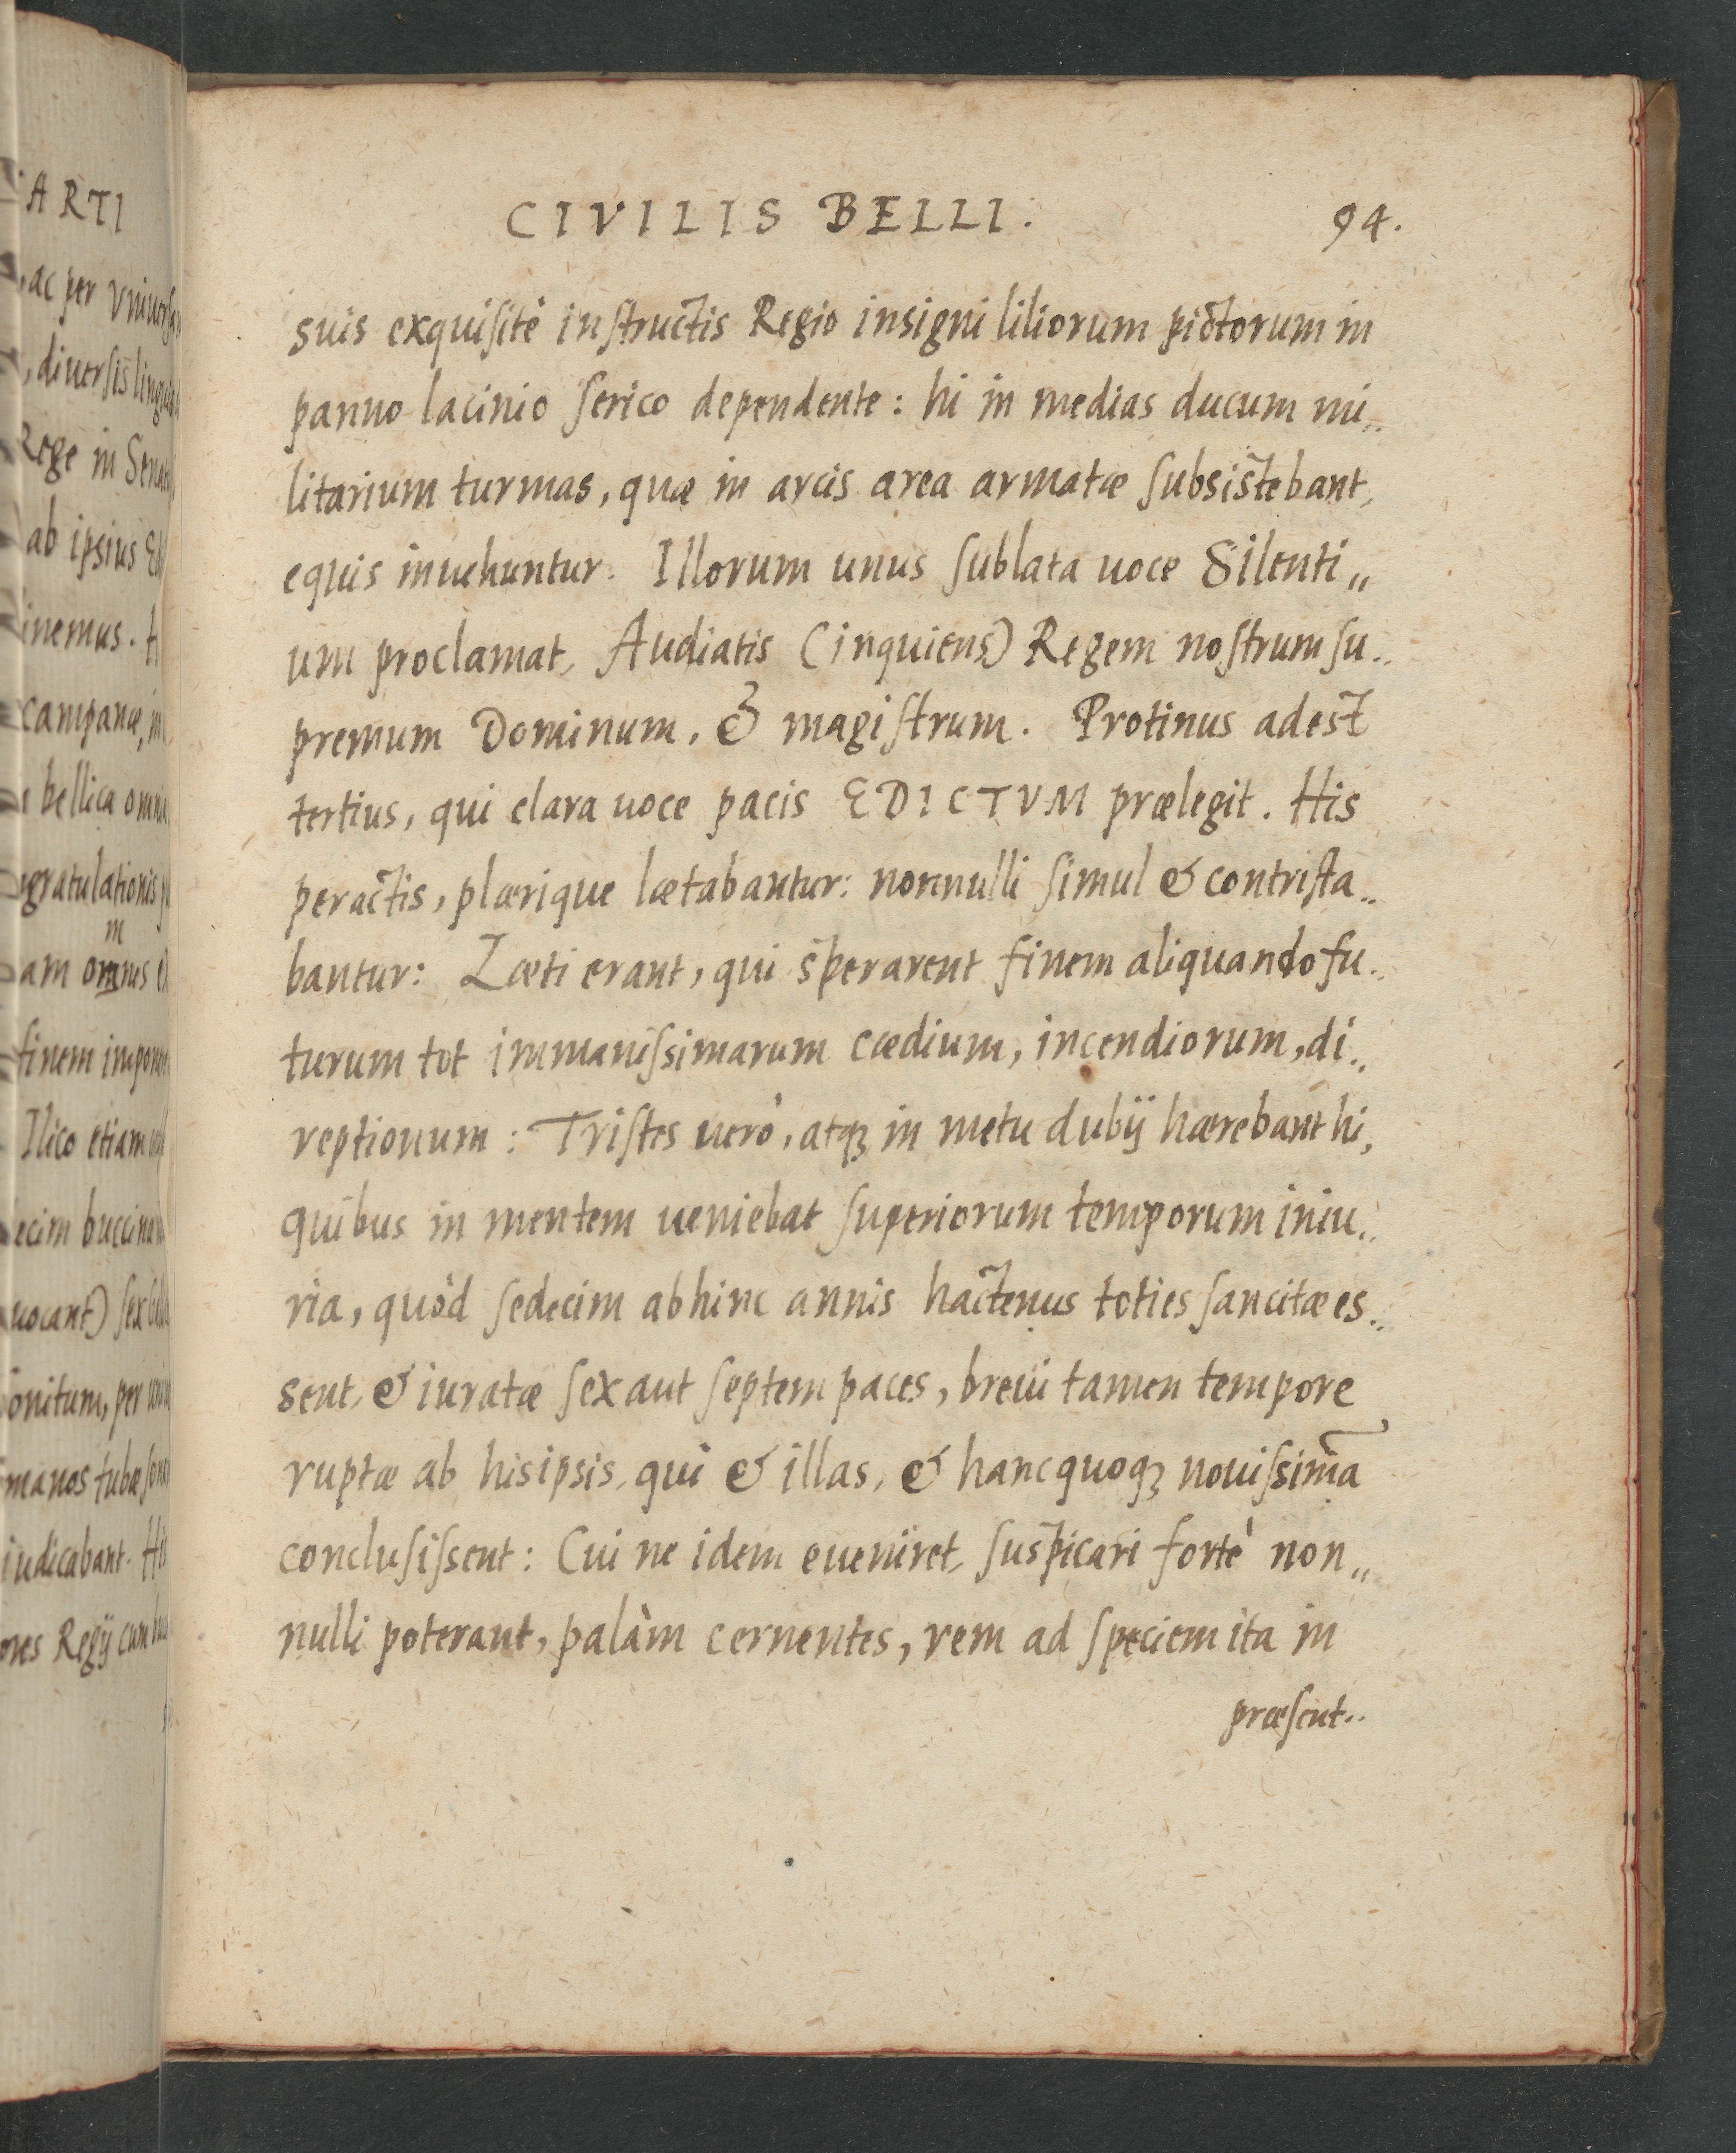 CIVILIS BELLI. 94.
suis exquiſitè inſtructis Regio insigni liliorum pictorum in
panno lacinio ſerico dependente: hi in medias ducum mi„
litarium turmas, quæ in arcis area armatæ ſubsistebant,
equis inuehuntur. Illorum unus ſublata uoce Silenti„
um proclamat, Audiatis (inquiens) Regem noſtrum ſu„
premum Dominum, & magiſtrum. Protinus adest
tertius, qui clara uoce pacis EDICTVM prælegit. His
peractis, plærique lætabantur: nonnulli ſimul & contriſta„
bantur: Læti erant, qui sperarent finem aliquando fu„
turum tot immaniſsimarum cædium, incendiorum, di„
reptionum: Triſtes uerò, atqꝫ in metu dubij hærebant hi,
quibus in mentem ueniebat ſuperiorum temporum iniu„
ria, quòd ſedecim abhinc annis hactenus toties ſancitæ es„
sent, & iuratæ ſex aut ſeptem paces, breui tamen tempore
ruptæ ab his ipsis, qui & illas, & hanc quoqꝫ nouiſsimā
concluſiſsent: Cui ne idem eueniret, ſuspicari fortè non„
nulli poterant, palàm cernentes, rem ad ſpeciem ita in
præſent„
ARTI
, ac per
, diuerſis
Rege in
ab ipsius
inemus.
campanæ,
bellica
gratulationis
m
am omnes
finem
Ilico etiam
ecim
uocant) ſex
onitum, per
manos tubæ
iudicabant. His
ones Regij cum